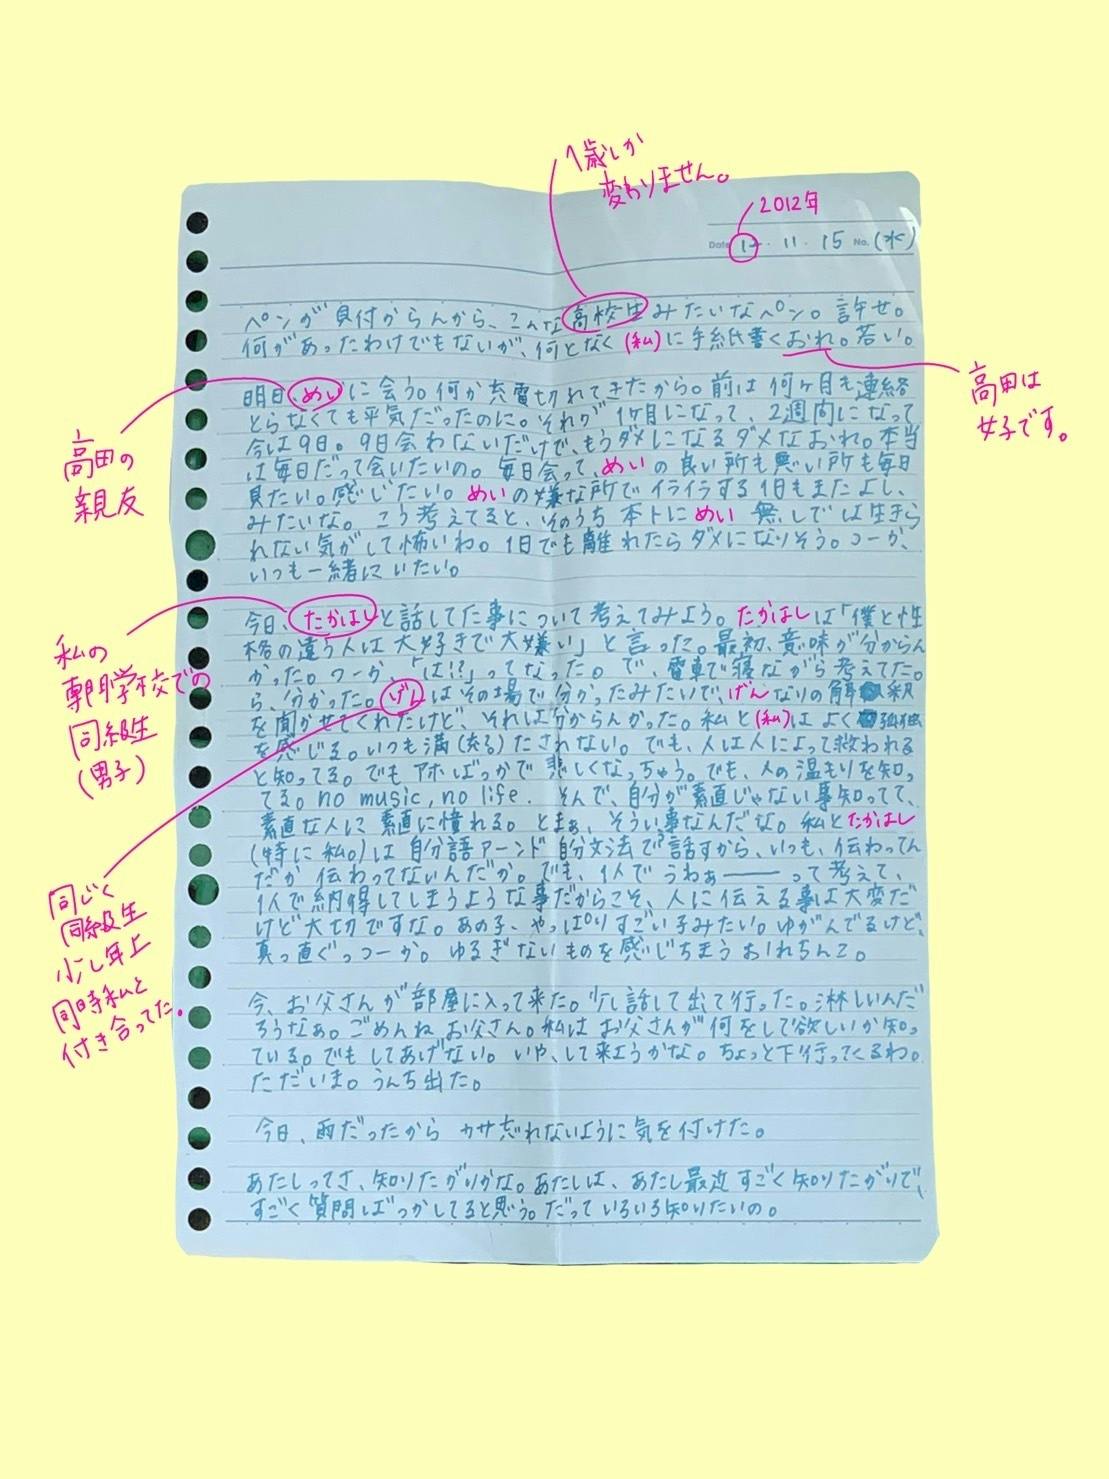 1歳しか
変わりません。
2012年
Date 12・11・15 No. (水)
ペンが見付からんから、こんな高校生みたいなペン。許せ。
何があったわけでもないが、何となく(私)に手紙書くおれ。若い。
高田は
女子です。
明日、めいに会う。何か充電切れてきたから。前は何ヶ月も連絡
とらなくても平気だったのに。それが1ヶ月になって、2週間になって
今は9日。9日会わないだけで、もうダメになるダメなおれ。本当
は毎日だって会いたいの。毎日会って、めいの良い所も悪い所も毎日
見たい。感じたい。めいの嫌な所でイライラする1日もまたよし、
みたいな。こう考えてると、そのうち本トにめい無しでは生きら
れない気がして怖いわ。1日でも離れたらダメになりそう。つーか、
いつも一緒にいたい。
高田の
親友
今日、たかはしと話してた事について考えてみよう。たかはしは「僕と性
格の違う人は大好きで大嫌い」と言った。最初、意味が分からん
かった。つーか、「は!?」ってなった。で、電車で寝ながら考えてた。
ら、分かった。げんはその場で分かったみたいで、げんなりの解釈
を聞かせてくれたけど、それは分からんかった。私と(私)はよく孤独
を感じる。いつも満(充る)たされない。でも、人は人によって救われる
と知ってる。でもアホばっかで悲しくなっちゃう。でも、人の温もりを知っ
てる。no music, no life. そんで、自分が素直じゃない事知ってて、
素直な人に素直に憧れる。とまぁ、そうい事なんだな。私とたかはし
(特に私。)は自分語アーンド自分文法で話すから、いつも、伝わってん
だか伝わってないんだか。でも、1人でうわぁ――って考えて、
1人で納得してしまうような事だからこそ、人に伝える事は大変だ
けど大切ですな。あの子、やっぱりすごい子みたい。ゆがんでるけど、
真っ直ぐっつーか。ゆるぎないものを感じちまうおれちんこ。
私の
専門学校での
同級生
(男子)
同じく
同級生
少し年上
同時私と
付き合ってた。
今、お父さんが部屋に入って来た。少し話して出て行った。淋しいんだ
ろうなぁ。ごめんねお父さん。私はお父さんが何をして欲しいか知っ
ている。でもしてあげない。いや、して来ようかな。ちょっと下行ってくるわ。
ただいま。うんち出た。
今日、雨だったからカサ忘れないように気を付けた。
あたしってさ、知りたがりかな。あたしは、あたし最近すごく知りたがりで、
すごく質問ばっかしてると思う。だっていろいろ知りたいの。